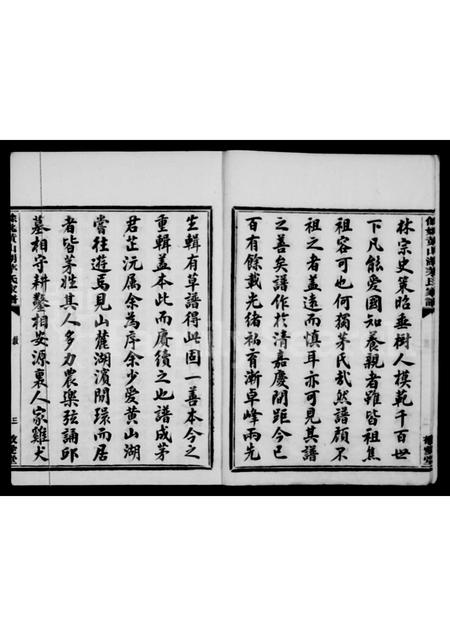 林宗史策昭垂樹人模範千百世
下凡能愛國知養親者雖皆祖焦
祖容可也何獨茅氏哉然譜顧不
祖之者盖遠而慎耳亦可見其譜
之善矣譜作於清嘉慶間距今已
百有餘載光緒初育漸卓峰兩先
生輯有草譜得此固一善本今之
重輯盖本此而賡續之也譜成茅
君芷沅属余為序余少愛黄山湖
嘗往遊焉見山麓湖濱閈環而居
者皆茅姓其人多力農樂弦誦邱
墓相守耕鑿相安源裏人家雞犬